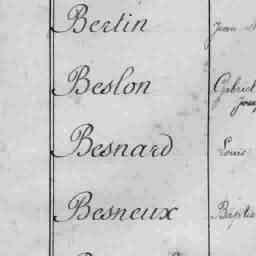 Bertin Jean
Beslon Gabriel
Joseph
Besnard Louis
Besneux Baptis